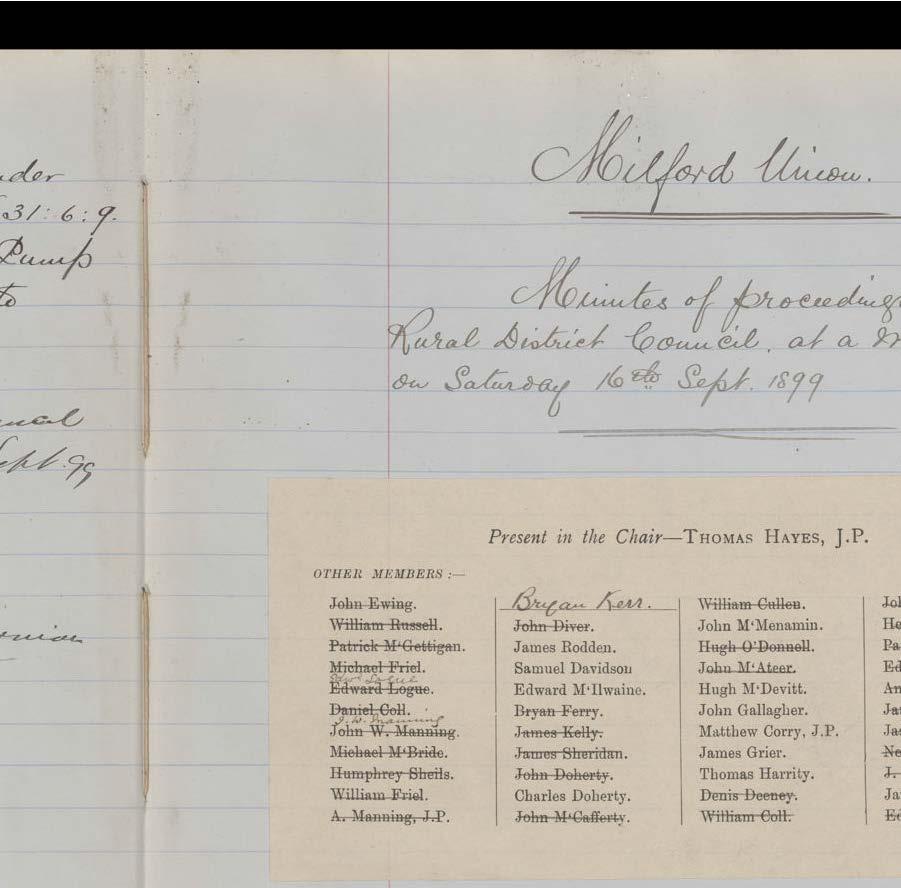 nder
31:6:9.
Pump
to
Sept. 99
Milford Union.
Minutes of proceeding
Rural District Council, at a
on Saturday 16th Sept. 1899
Present in the Chair—THOMAS HAYES, J.P.
OTHER MEMBERS:—
John Ewing.
William Russell.
Patrick M‘Gettigan.
Michael Friel.
Edwd Logue
Edward Logue.
Daniel Coll.
J. W. Manning
John W. Manning.
Michael M‘Bride.
Humphrey Sheils.
William Friel.
A. Manning, J.P.
Bryan Kerr.
John Diver.
James Rodden.
Samuel Davidson
Edward M‘Ilwaine.
Bryan Ferry.
James Kelly.
James Sheridan.
John Doherty.
Charles Doherty.
John M‘Cafferty.
William Cullen.
John M‘Menamin.
Hugh O’Donnell.
John M‘Ateer.
Hugh M‘Devitt.
John Gallagher.
Matthew Corry, J.P.
James Grier.
Thomas Harrity.
Denis Deeney.
William Coll.
Joh
He
Pa
Ed
An
Ja
Ja
Ne
J.
Ja
Ed